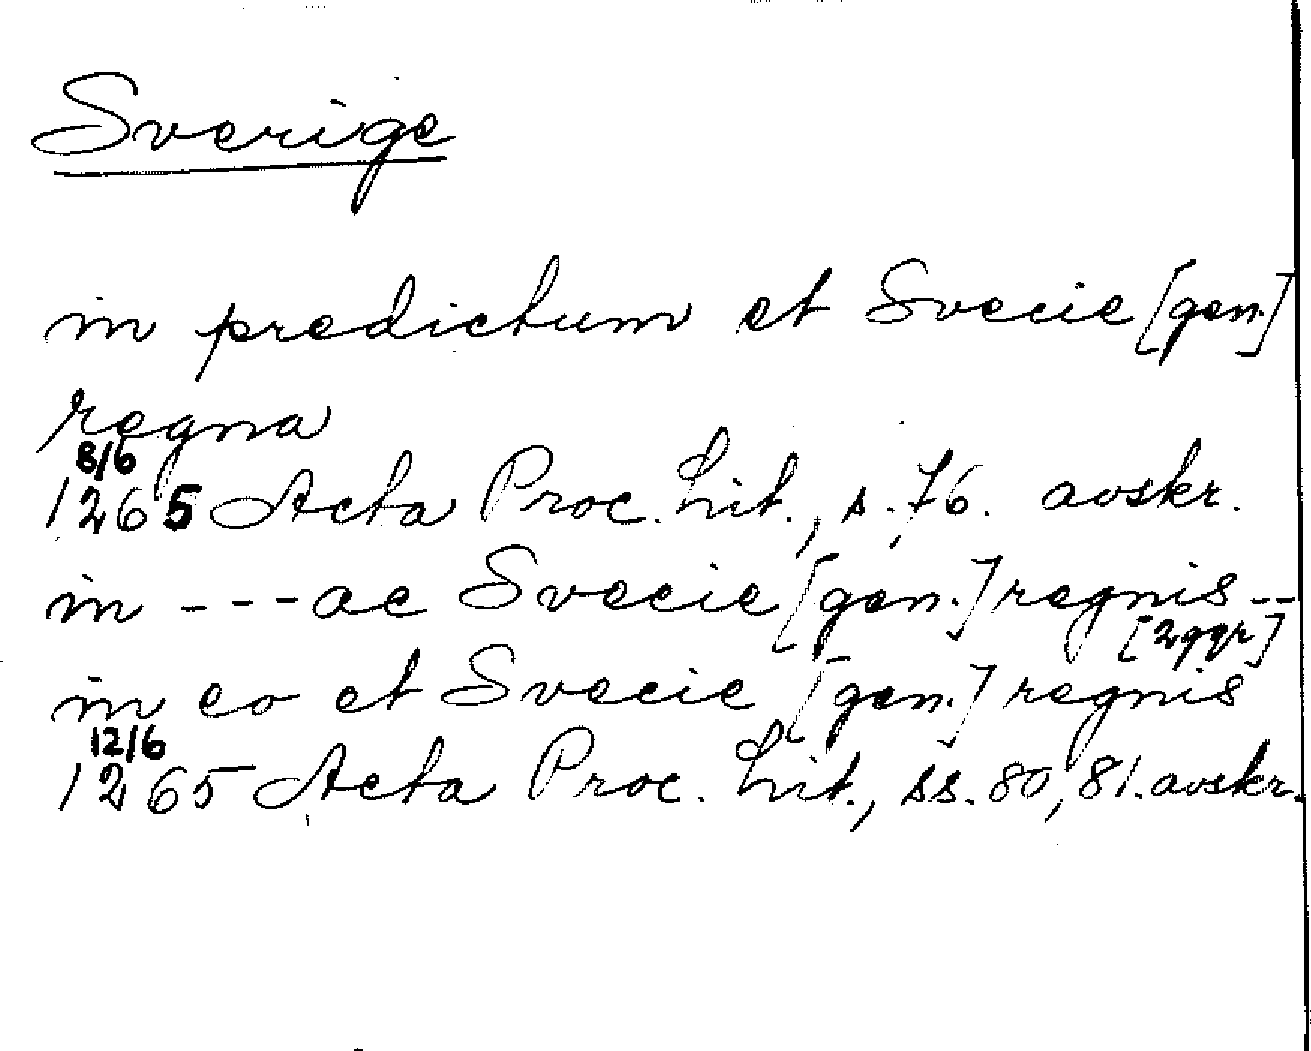 Sverige
in predictum et Svecie [gen.]
regna
8/6
1265 Acta Proc. Lit., s. 76. avskr.
in - - - ac Svecie [gen.] regnis --
[2ggr]
in eo et Svecie [gen.] regnis
12/6
1265 Acta Proc. Lit., ss. 80, 81. avskr.